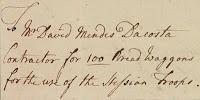 To Mr David Mendes Dacosta
Contractor for 100 Bread Waggons
for the use of the Hessian Troops.